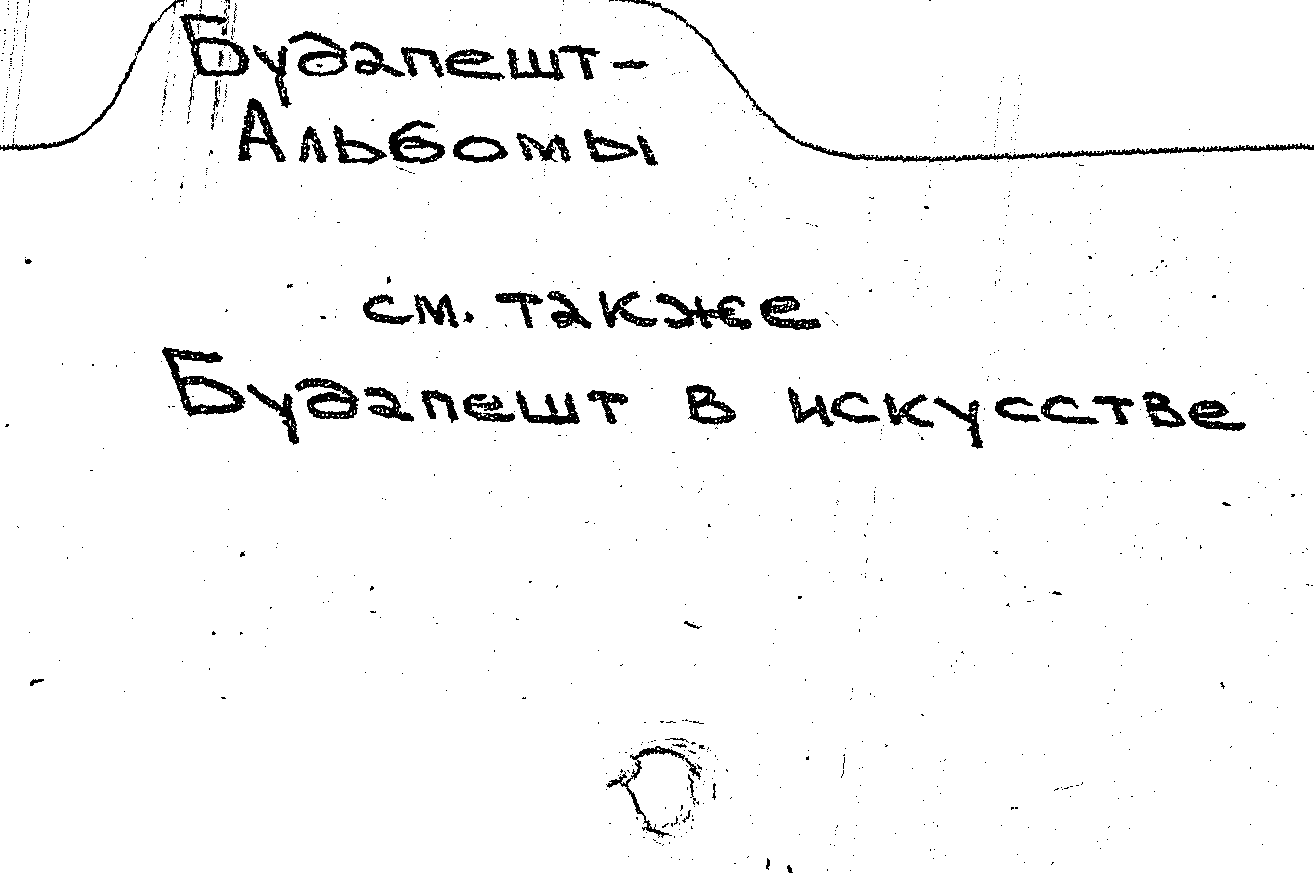 Будапешт-
Альбомы
см. также
Будапешт в искусстве